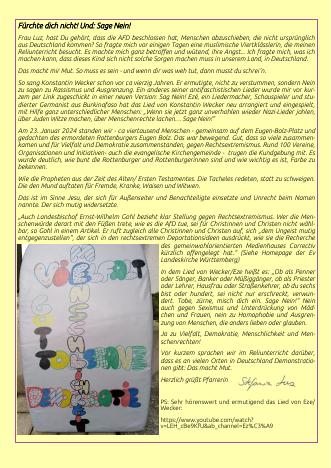 Fürchte dich nicht! Und: Sage Nein!
Frau Luz, hast Du gehört, dass die AFD beschlossen hat, Menschen abzuschieben, die nicht ursprünglich
aus Deutschland kommen? So fragte mich vor einigen Tagen eine muslimische Viertklässlerin, die meinen
Reliunterricht besucht. Es machte mich ganz betroffen und wütend, ihre Angst.. Ich fragte mich, was ich
machen kann, dass dieses Kind sich nicht solche Sorgen machen muss in unserem Land, in Deutschland.
Das macht mir Mut. So muss es sein - und wenn dir was weh tut, dann musst du schrei'n.
So sang Konstantin Wecker schon vor ca vierzig Jahren. Er ermutigte, nicht zu verstummen, sondern Nein
zu sagen zu Rassismus und Ausgrenzung. Ein anderes seiner antifaschistischen Lieder wurde mir vor kur-
zem per Link zugeschickt in einer neuen Version: Sag Nein! Ezé, ein Liedermacher, Schauspieler und stu-
dierter Germanist aus Burkinafaso hat das Lied von Konstantin Wecker neu arrangiert und eingespielt,
mit Hilfe ganz unterschiedlicher Menschen: „Wenn sie jetzt ganz unverhohlen wieder Nazi-Lieder johlen,
über Juden Witze machen, über Menschenrechte lachen... Sage Nein!"
Am 23. Januar 2024 standen wir - ca viertausend Menschen - gemeinsam auf dem Eugen-Bolz-Platz und
gedachten des ermordeten Rottenburgers Eugen Bolz. Das war bewegend. Gut, dass so viele zusammen-
kamen und für Vielfalt und Demokratie zusammenstanden, gegen Rechtsextremismus. Rund 100 Vereine,
Organisationen und Initiativen- auch die evangelische Kirchengemeinde - trugen die Kundgebung mit. Es
wurde deutlich, wie bunt die Rottenburger und Rottenburgerinnen sind und wie wichtig es ist, Farbe zu
bekennen.
Wie die Propheten aus der Zeit des Alten/ Ersten Testamentes. Die Tacheles redeten, statt zu schweigen.
Die den Mund auftaten für Fremde, Kranke, Waisen und Witwen.
Das ist im Sinne Jesu, der sich für Außenseiter und Benachteiligte einsetzte und Unrecht beim Namen
nannte. Der sich mutig widersetzte.
„Auch Landesbischof Ernst-Wilhelm Gohl bezieht klar Stellung gegen Rechtsextremismus. Wer die Men-
schenwürde derart mit den Füßen trete, wie es die AfD tue, sei für Christinnen und Christen nicht wähl-
bar, so Gohl in einem Artikel. Er ruft zugleich alle Christinnen und Christen auf, sich „dem Ungeist mutig
entgegenzustellen", der sich in den rechtsextremen Deportationsideen ausdrückt, wie sie die Recherche
des gemeinwohlorientierten Medienhauses Correctiv
kürzlich offengelegt hat." (Siehe Homepage der Ev
Landeskirche Württemberg)
In dem Lied von Wecker/Eze heißt es: „Ob als Penner
oder Sänger, Banker oder Müßiggänger, ob als Priester
oder Lehrer, Hausfrau oder Straßenkehrer, ob du sechs
bist oder hundert, sei nicht nur erschreckt, verwun-
dert. Tobe, zürne, misch dich ein. Sage Nein!" Nein
auch gegen Sexismus und Unterdrückung von Mäd-
chen und Frauen, nein zu Homophobie und Ausgren-
zung von Menschen, die anders lieben oder glauben.
Ja zu Vielfalt, Demokratie, Menschlichkeit und Men-
schenrechten!
Vor kurzem sprachen wir im Reliunterricht darüber,
dass es an vielen Orten in Deutschland Demonstratio-
nen gibt: Das macht Mut.
Herzlich grüßt Pfarrerin
PS: Sehr hörenswert und ermutigend das Lied von Eze/
Wecker:
https://www.youtube.com/watch?